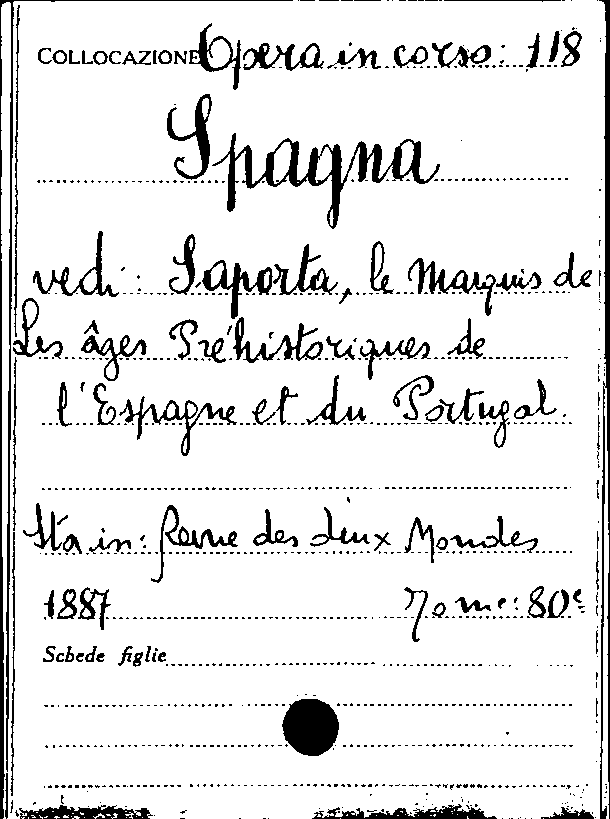 COLLOCAZIONE Opera in corso: 118
Spagna
vedi: Saporta, le Marquis de
Les âges Préhistoriques de
l'Espagne et du Portugal.
Sta in: Revue des deux Mondes
1887 Tome: 80e
Schede figlie